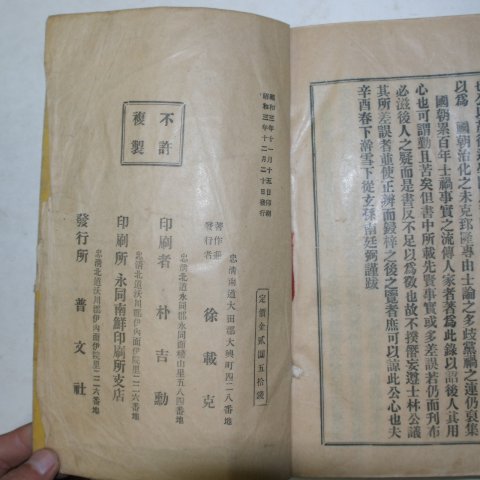 以爲 國朝治化之未克郅隆專由士論之多歧黨禍之連仍裒集
國朝累百年士禍事實之流傳人家者爲此錄以詔後人其用
心也可謂勤且苦矣但書中所載先賢事實或多差誤若仍而刊布
必滋後人之疑而是書反不足以爲敬也故不揆僭妄遵士林公議
其所差誤者並使正辨而鋟梓之後之覽者庶可以諒此公心也夫
辛酉春下澣雪下從玄孫南廷弼謹跋
定價金貳圓五拾錢
昭和三年十一月十五日印刷
昭和三年十二月二十日發行
不許
複製
忠淸南道大田郡大興町四二八番地
著作兼
發行者 徐載克
忠淸北道永同郡永同面稽山里五八四番地
印刷者 朴吉勳
印刷所 永同南鮮印刷所支店
忠淸北道沃川郡伊內面伊院里二二六番地
發行所 普文社
忠淸北道沃川郡伊內面伊院里二二六番地